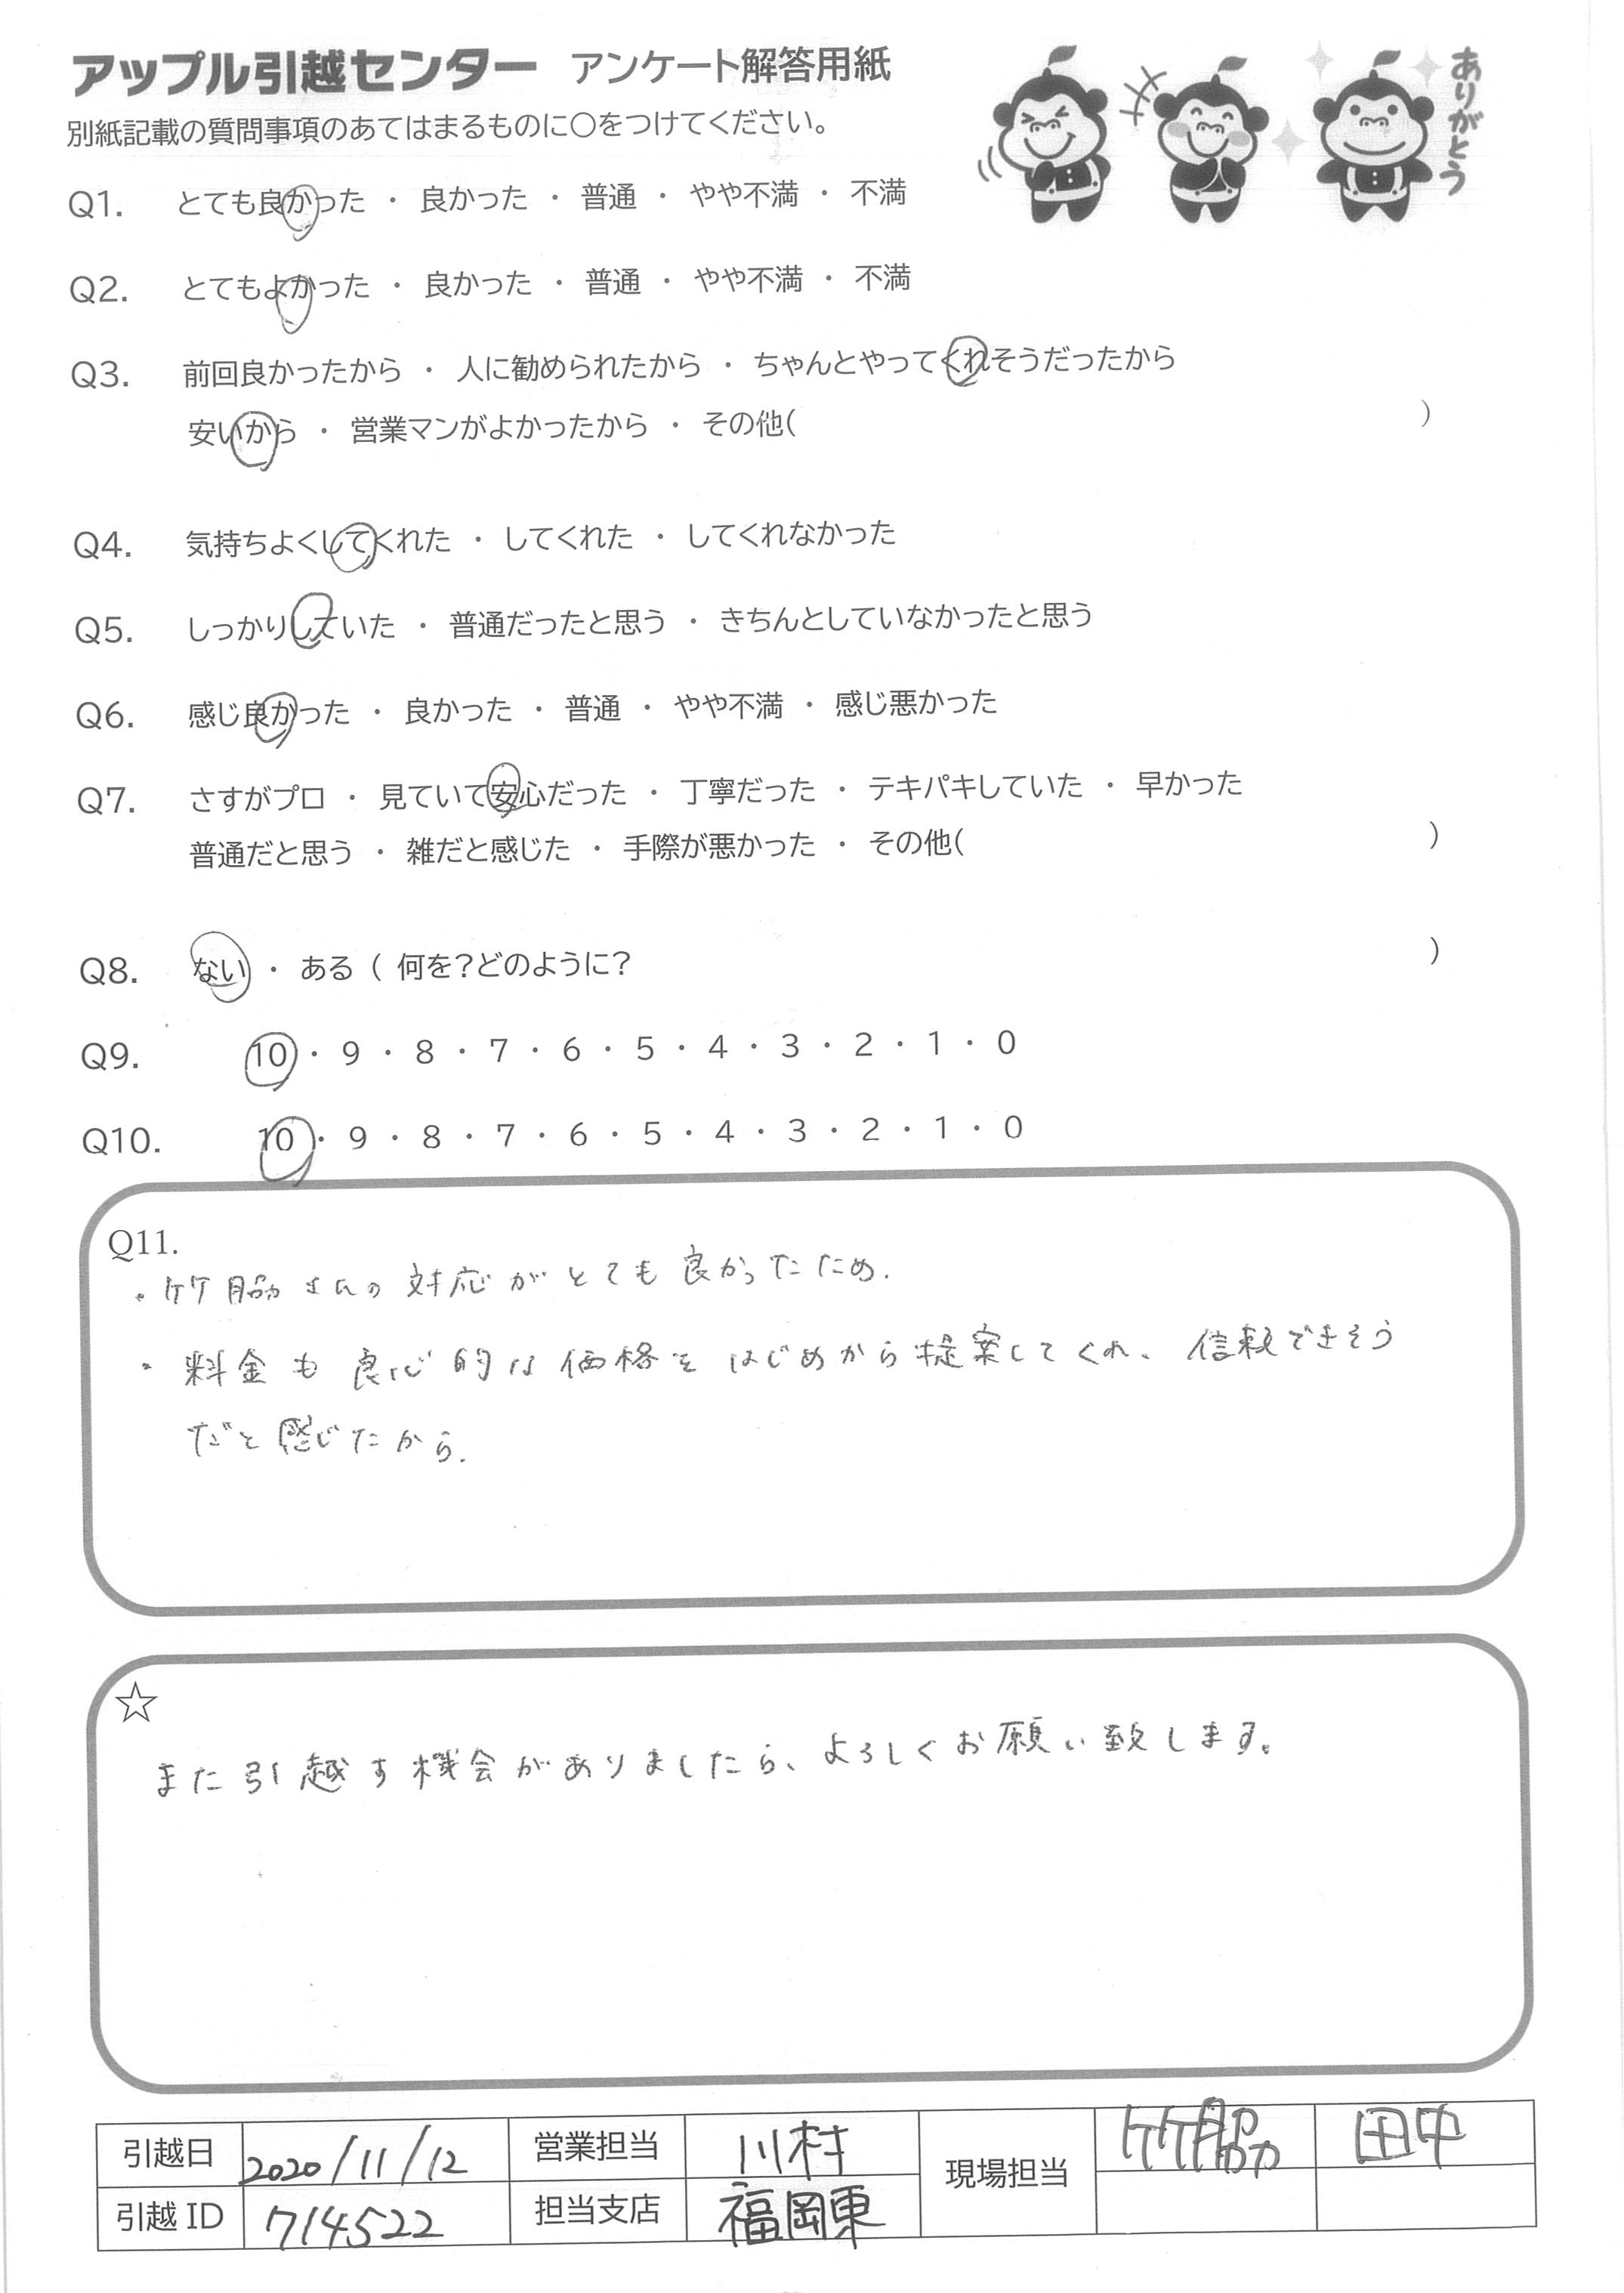 アップル引越センター アンケート解答用紙
ありがとう
別紙記載の質問事項のあてはまるものに〇をつけてください。
Q1. とても良かった ・ 良かった ・ 普通 ・ やや不満 ・ 不満
Q2. とてもよかった ・ 良かった ・ 普通 ・ やや不満 ・ 不満
Q3. 前回良かったから ・ 人に勧められたから ・ ちゃんとやってくれそうだったから
安いから ・ 営業マンがよかったから ・ その他( )
Q4. 気持ちよくしてくれた ・ してくれた ・ してくれなかった
Q5. しっかりしていた ・ 普通だったと思う ・ きちんとしていなかったと思う
Q6. 感じ良かった ・ 良かった ・ 普通 ・ やや不満 ・ 感じ悪かった
Q7. さすがプロ ・ 見ていて安心だった ・ 丁寧だった ・ テキパキしていた ・ 早かった
普通だと思う ・ 雑だと感じた ・ 手際が悪かった ・ その他( )
Q8. ない ・ ある ( 何を?どのように? )
Q9. 10 ・ 9 ・ 8 ・ 7 ・ 6 ・ 5 ・ 4 ・ 3 ・ 2 ・ 1 ・ 0
Q10. 10 ・ 9 ・ 8 ・ 7 ・ 6 ・ 5 ・ 4 ・ 3 ・ 2 ・ 1 ・ 0
Q11.
・竹脇さんの対応がとても良かったため.
・料金も良心的な価格をはじめから提案してくれ、信頼できそう
だと感じたから.
☆
また引越す機会がありましたら、よろしくお願い致します。
引越日 2020/11/12 営業担当 川村 現場担当 竹脇 田中
引越 ID 714522 担当支店 福岡東